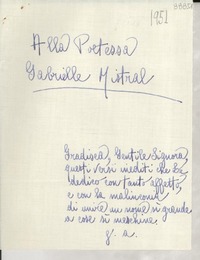 1951
Alla Poetessa
Gabrielle Mistral
Gradisca, Gentile Signora,
questi versi inediti che Le
dedico con tanto affetto,
e con la malinconia
di unire un nome sì grande
a cose sì meschine.
g. a.